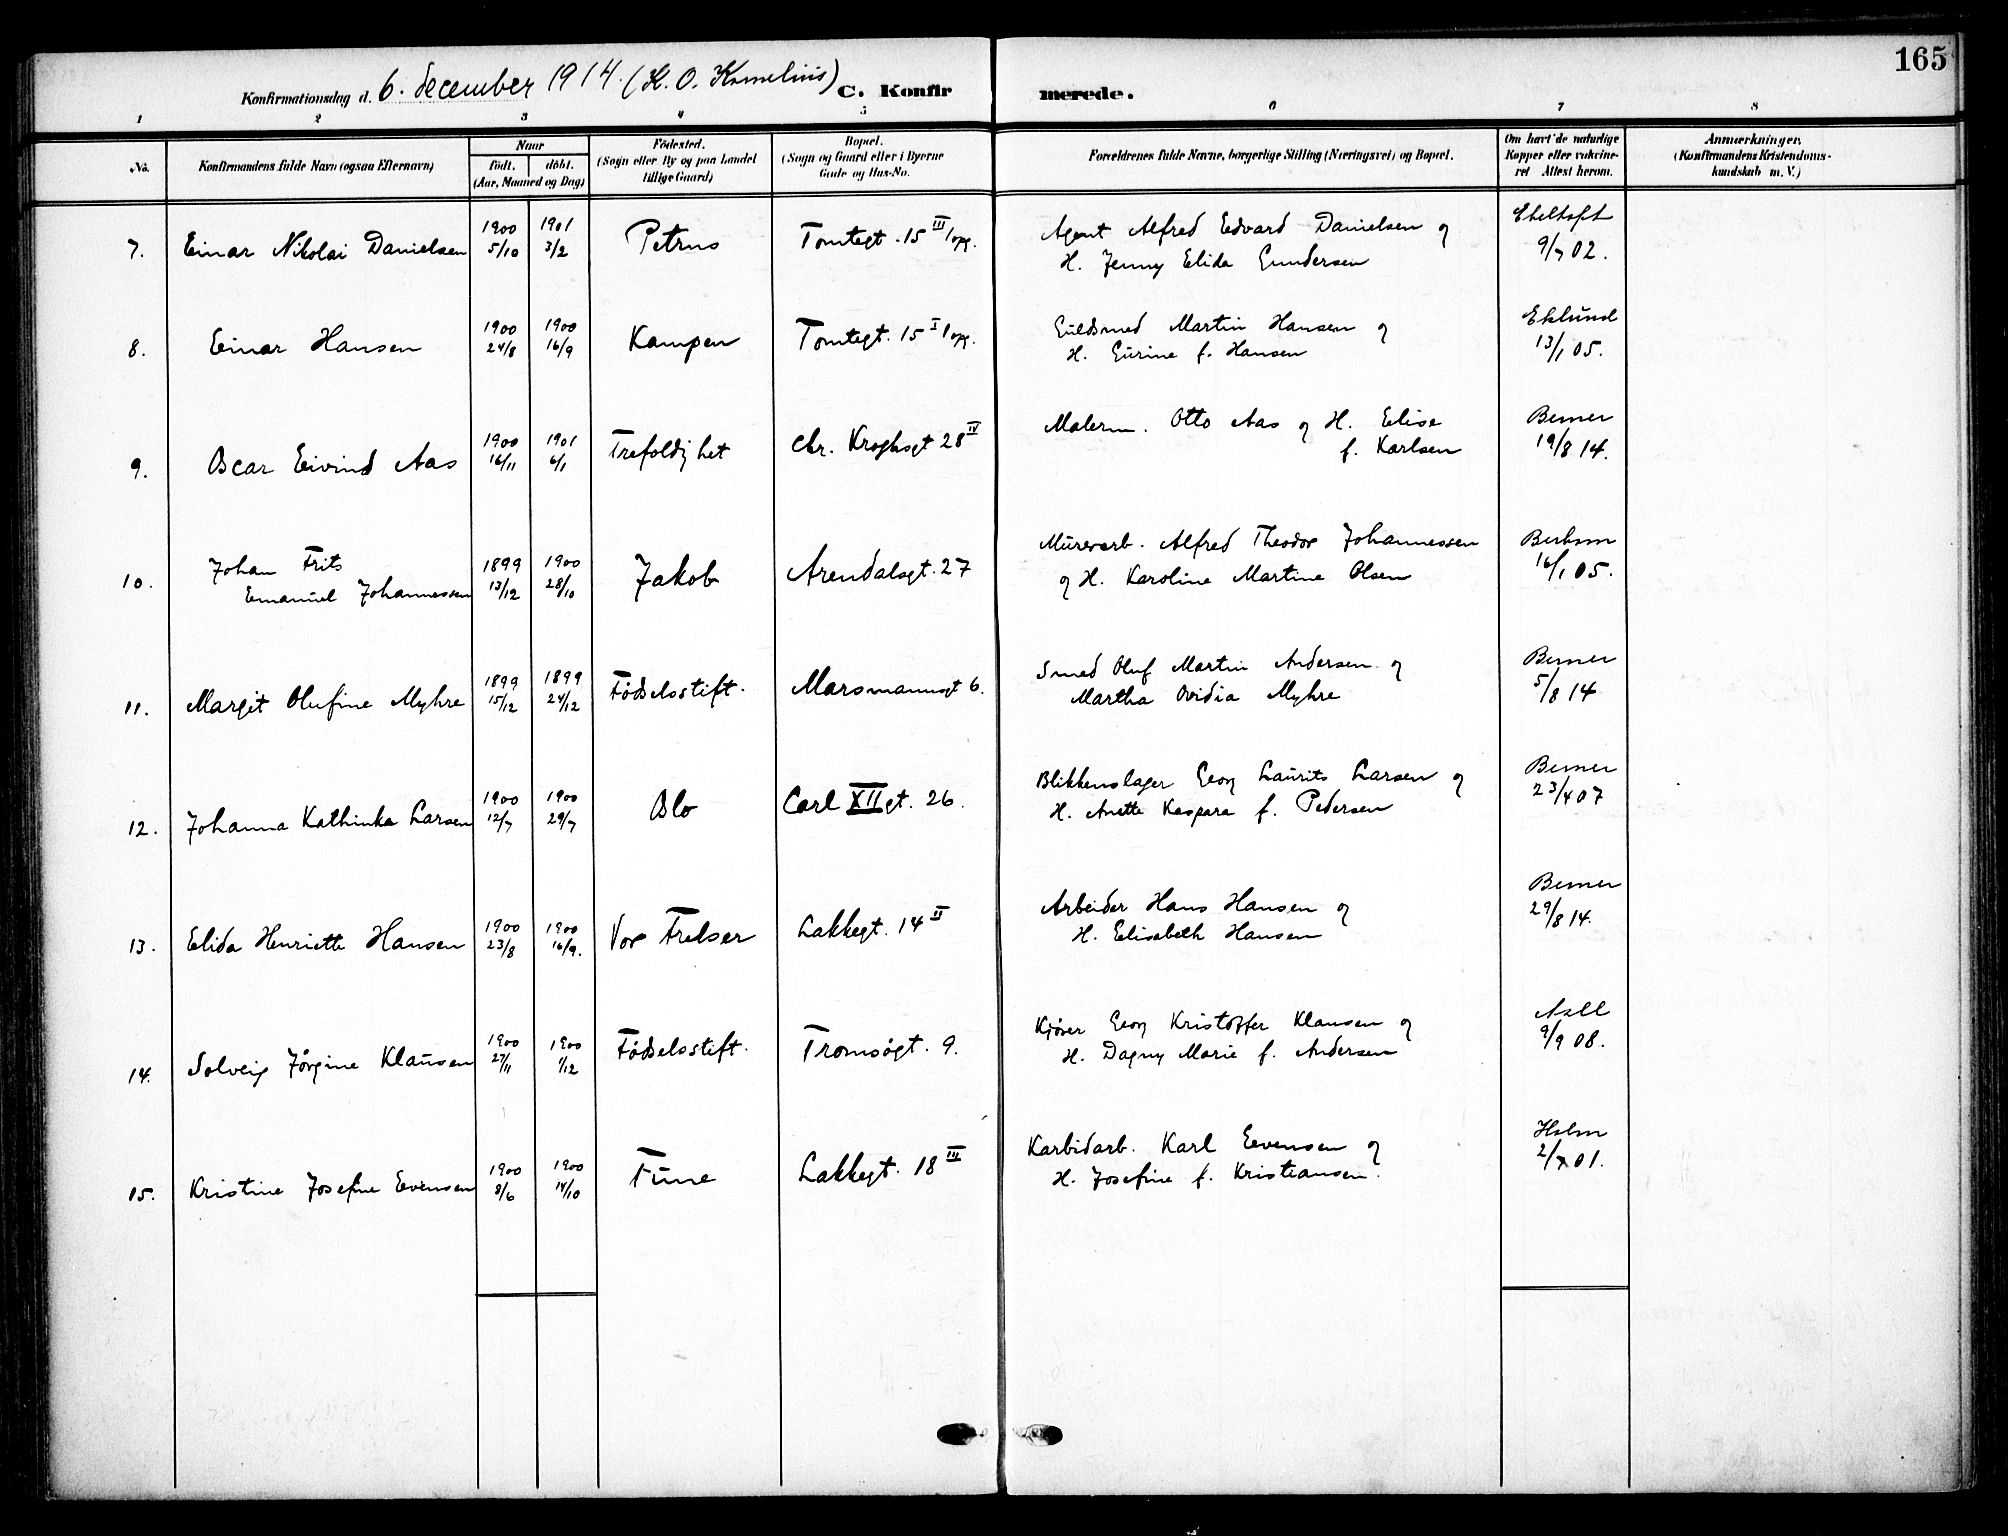 165
Konfirmationsdag d. 6. december 1914. (K. O. Kornelius) C. Konfirmerede.
1 2 3 4 5 6 7 8
No. Konfirmandens fulde Navn (ogsaa Efternavn) Naar født. døbt. (Aar, Maaned og Dag) Fødested. (Sogn eller By og paa Landet tillige Gaard) Bopæl. (Sogn og Gaard eller i Byerne Gade og Hus-No. Forældrenes fulde Navne, borgerlige Stilling (Næringsvei) og Bopæl. Om havt de naturlige Kopper eller vakcineret Attest herom. Anmærkninger. (Konfirmandens Kristendomskundskab m. V.)
7. Einar Nikolai Danielsen 1900 5/10 1901 3/2 Petrus Tomtegt. 15 III opg. Agent Alfred Edvard Danielsen og
H. Jenny Elida Gundersen Ebeltoft 9/7 02.
8. Einar Hansen 1900 24/8 1900 16/9 Kampen Tomtegt. 15 I opg. Guldsmed Martin Hansen og
H. Gurine f. Hansen Eklund 13/1 05.
9. Oscar Eivind Aas 1900 16/11 1901 6/1 Trefoldighet Chr. Kroghsgt 28 IV Malerm. Otto Aas og H. Elise
f. Karlsen Berner 19/8 14.
10. Johan Frits
Emanuel Johannessen 1899 13/12 1900 28/10 Jakob Arendalsgt. 27 Murerarb. Alfred Theodor Johannessen
og H. Karoline Martine Olsen 16/1 05.
11. Margit Olufine Myhre 1899 15/12 1899 24/12 Fødselsstift. Marsmannsgt 6. Smed Oluf Martin Andersen og
Martha Ovidia Myhre Berner 5/8 14
12. Johanna Kathinka Larsen 1900 12/7 1900 29/7 Oslo Carl XII gt. 26. Blikkenslager Georg Laurits Larsen og
H. Anette Kaspara f. Pedersen Berner 23/4 07
13. Elida Henriette Hansen 1900 23/8 1900 16/9. Vor Frelser Lakkegt. 14 II Arbeider Hans Hansen og
H. Elisabeth Hansen Berner 29/8 14.
14. Solveig Jørgine Klausen 1900 27/11 1900 1/12 Fødselsstift. Tromsøgt. 9. Kjører Georg Kristoffer Klausen og
H. Dagny Marie f. Andersen 9/9 08.
15. Kristine Josefine Evensen 1900 8/6 1900 14/10 Tune Lakkegt. 18 III Karbidarb. Karl Evensen og
H. Josefine f. Kristiansen. Holm 2/7 01.